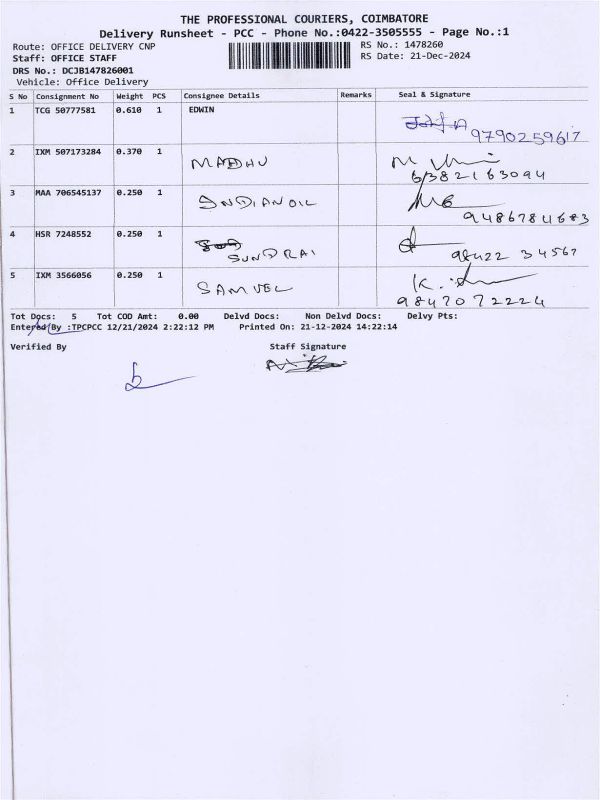 THE PROFESSIONAL COURIERS, COIMBATORE
Delivery Runsheet - PCC - Phone No.:0422-3505555 - Page No.:1
Route: OFFICE DELIVERY CNP RS No.: 1478260
Staff: OFFICE STAFF RS Date: 21-Dec-2024
DRS No.: DCJB147826001
Vehicle: Office Delivery
S No Consignment No Weight PCS Consignee Details Remarks Seal & Signature
1 TCG 50777581 0.610 1 EDWIN
9790259617
2 IXM 507173284 0.370 1 MADHU
6382163094
3 MAA 706545137 0.250 1 INDIANOIL
9486784683
4 HSR 7248552 0.250 1
SUNDRAI 98422 34567
5 IXM 3566056 0.250 1 SAMVEL
9847072224
Tot Docs: 5 Tot COD Amt: 0.00 Delvd Docs: Non Delvd Docs: Delvy Pts:
Entered By :TPCPCC 12/21/2024 2:22:12 PM Printed On: 21-12-2024 14:22:14
Verified By Staff Signature